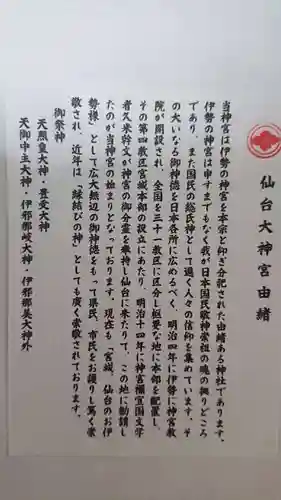 仙台大神宮由緒
当神宮は伊勢の神宮を本宗と仰ぎ分祀された由緒ある神社であります。
伊勢の神宮は申すまでもなく我が日本国民敬神崇祖の魂の拠りどころ
であり、また国民の総氏神として遍く人々の信仰を集めています。そ
の大いなる御神徳を日本各所に広めるべく、明治四年に伊勢に神宮教
院が開設され、全国を三十一教区に区分し枢要な地に本部を配置し、
その第四教区宮城本部の設立にあたり、明治十四年に神宮禰宜国文学
者久米幹文が神宮の御分霊を奉持し仙台に来たりて、この地に勧請し
たのが当神宮の始まりとなっております。現在も、宮城、仙台のお伊
勢様」として広大無辺の御神徳をもって県民、市民をお護りし篤く崇
敬され、近年は「縁結びの神」としても広く崇敬されております。
御祭神
天照皇大神・豊受大神
天御中主大神・伊邪那岐大神・伊邪那美大神外